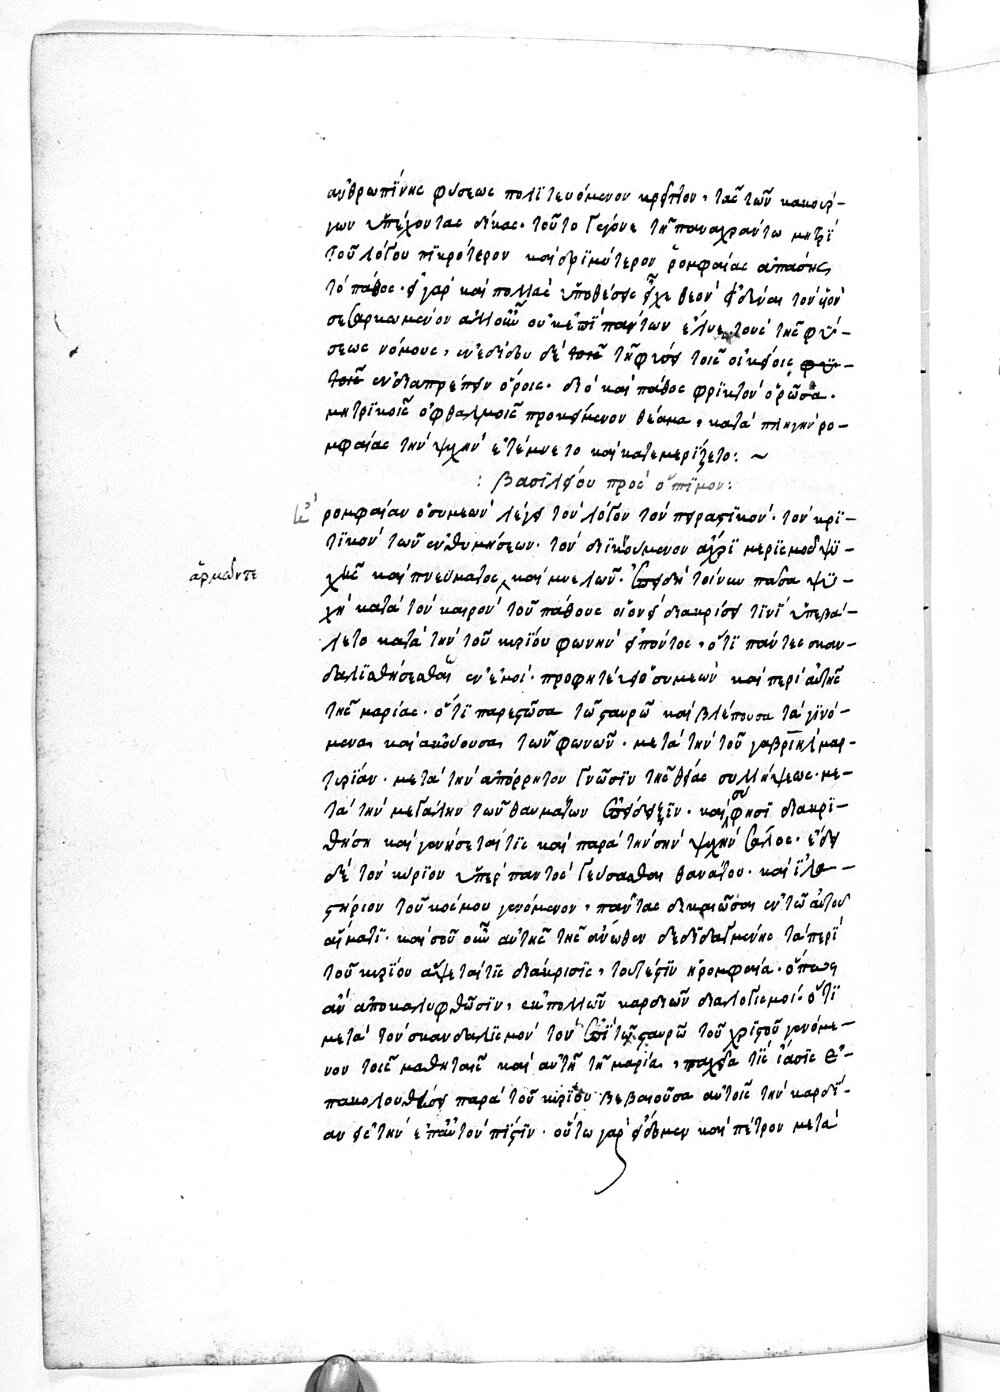 ἀνθρωπίνης φύσεως πολϊτευόμενον κρεῖττον, τὰς τῶν κακούρ-
γων ὑπέχοντας δίκας. τοῦτο γέγονε τῆ παναχράντω μητρὶ
τοῦ λόγου πϊκρότερον καὶ δρϊμύτερον ῥομφαίας ἁπάσης
τὸ πάθος. εἰ γὰρ καὶ πολλὰς ὑποθέσεις εἶχε θεὸν εἰδέναι τὸν υἱὸν
σεσαρκωμένον ἀλλ' οὖν οὐκ ἐπὶ πάντων ἔλυε τοὺς τῆς φύ-
σεως νόμους, ἐνεδίδου δὲ τοῖς τῆ φύσει τοῖς οἰκείοις φυ-
τοῖς ἐνδιαπρέπειν ὅροις. διὸ καὶ πάθος φρϊκτὸν ὁρῶσα.
μητρϊκοῖς ὀφθαλμοῖς προκείμενον θέαμα, κατὰ πληγὴν ῥο-
μφαίας τὴν ψυχὴν ἐτέμνετο καὶ κατεμερίζετο: ~
: βασϊλείου πρὸς ὀπτϊμον:
ῥομφαίαν ὁ συμεὼν λέγει τὸν λόγον τὸν πειραστϊκὸν. τὸν κρϊ-
τϊκὸν τῶν ἐνθυμήσεων. τὸν διϊκνούμενον ἄχρϊ μερϊσμοῦ ψυ-
χῆς καὶ πνεύματος, καὶ μυελῶν. ἐπειδὴ τοίνυν πᾶσα ψυ-
ἁρμῶν τε
χὴ κατὰ τὸν καιρὸν τοῦ πάθους οἱονεὶ διακρίσει τϊνὶ ὑπεβά-
λετο κατὰ τὴν τοῦ κυρϊου φωνὴν εἰπόντος, ὅτϊ πάντες σκαν-
δαλϊσθήσεσθαι ἐν ἐμοὶ. προφητεύει ὁ συμεὼν καὶ περὶ αὐτῆς
τῆς μαρίας. ὅτϊ παρεστῶσα τῶ σταυρῶ καὶ βλέπουσα τὰ γϊνό-
μενα, καὶ ἀκούουσα, τῶν φωνῶν. μετὰ τὴν τοῦ γαβριὴλ μαρ-
τυρίαν. μετὰ τὴν ἀπόρρητον γνῶσϊν τῆς θείας συλλήψεως. με-
τὰ τὴν μεγάλην τῶν θαυμάτων ἐπίδειξϊν. καὶ σὺ φησὶ διακρϊ-
θήση καὶ γενήσεταί τϊς καὶ παρὰ τὴν σὴν ψυχὴν σάλος. ἔδει
δὲ τὸν κύρϊον ὑπὲρ παντὸς γεύσασθαι θανάτου. καὶ ἱλα-
στήριον τοῦ κόσμου γενόμενον, πάντας δικαιῶσαι ἐν τῶ αὐτοῦ
αἵματϊ. καὶ σοῦ οὖν αὐτῆς τῆς ἄνωθεν δεδϊδαγμένης τὰ περὶ
τοῦ κυρϊου ἅψεταί τϊς διάκρισϊς, τουτέστϊν ἡ ῥομφαία. ὅπως
ἂν ἀποκαλυφθῶσϊν, ἐκ πολλῶν καρδιῶν διαλογϊσμοὶ. ὅτϊ
μετὰ τὸν σκανδαλϊσμὸν τὸν ἐπὶ τῶ σταυρῶ τοῦ χρϊστοῦ γενόμε-
νον τοῖς μαθηταῖς καὶ αὐτῆ τῆ μαρία, ταχεῖά τϊς ἴασϊς ἐ-
πακολουθήσει παρὰ τοῦ κυρϊου βεβαιοῦσα αὐτοῖς τὴν καρδί-
αν εἰς τὴν ἐπ' αὐτὸν πίστϊν. οὕτω γὰρ εἴδομεν καὶ πέτρον μετὰ